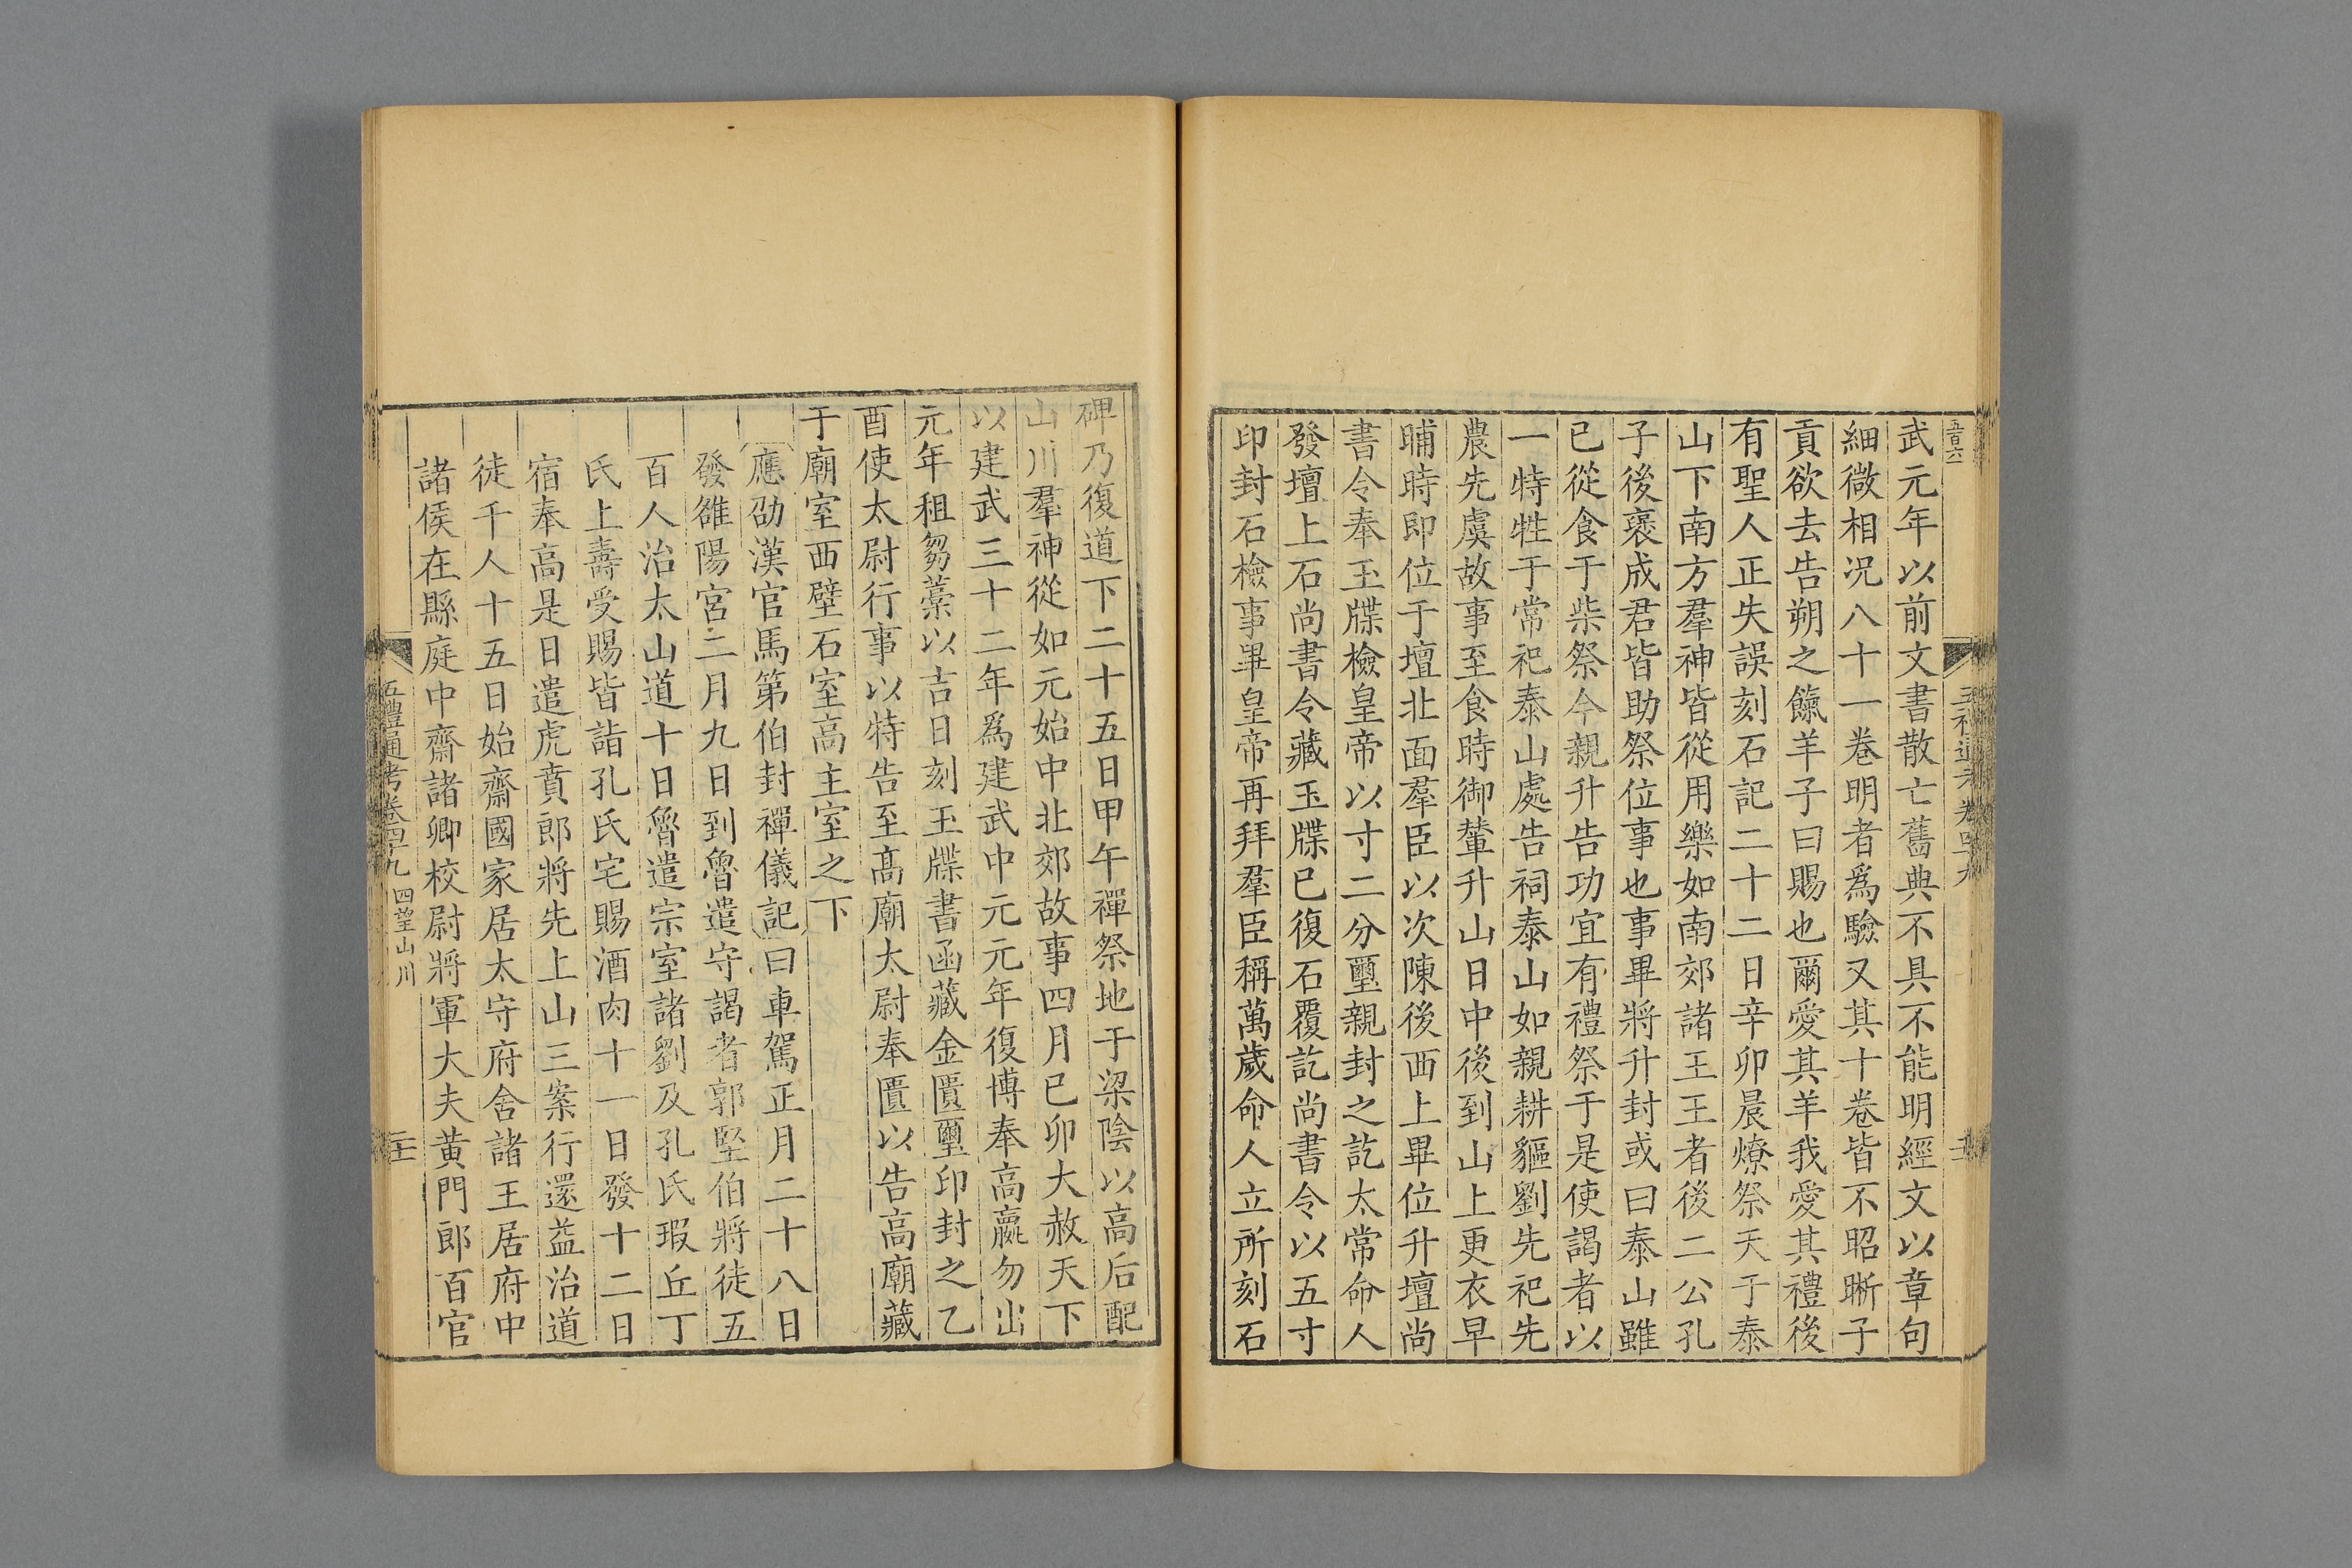 五百六
五禮通考卷四十九
武元年以前文書散亡舊典不具不能明經文以章句
細微相况八十一卷明者爲驗又其十卷皆不昭晣子
貢欲去告朔之餼羊子曰賜也爾愛其羊我愛其禮後
有聖人正失誤刻石記二十二日辛卯晨燎祭天于泰
山下南方羣神皆從用樂如南郊諸王王者後二公孔
子後襃成君皆助祭位事也事畢將升封或曰泰山雖
已從食于柴祭今親升告功宜有禮祭于是使謁者以
一特牲于常祀泰山處告祠泰山如親耕貙劉先祀先
農先虞故事至食時御輦升山日中後到山上更衣早
晡時即位于壇北面羣臣以次陳後西上畢位升壇尚
書令奉玉牒檢皇帝以寸二分璽親封之訖太常命人
發壇上石尚書令藏玉牒已復石覆訖尚書令以五寸
印封石檢事畢皇帝再拜羣臣稱萬歲命人立所刻石
碑乃復道下二十五日甲午禪祭地于梁陰以高后配
山川羣神從如元始中北郊故事四月己卯大赦天下
以建武三十二年爲建武中元元年復博奉高嬴勿出
元年租芻藁以吉日刻玉牒書函藏金匱璽印封之乙
酉使太尉行事以特告至高廟太尉奉匱以告高廟藏
于廟室西壁石室高主室之下
應劭漢官馬第伯封禪儀記曰車駕正月二十八日
發雒陽宮二月九日到魯遣守謁者郭堅伯將徒五
百人治太山道十日魯遣宗室諸劉及孔氏瑕丘丁
氏上壽受賜皆詣孔氏宅賜酒肉十一日發十二日
宿奉高是日遣虎賁郎將先上山三案行還益治道
徒千人十五日始齋國家居太守府舍諸王居府中
諸侯在縣庭中齋諸卿校尉將軍大夫黃門郎百官
五禮通考卷四十九 四望山川